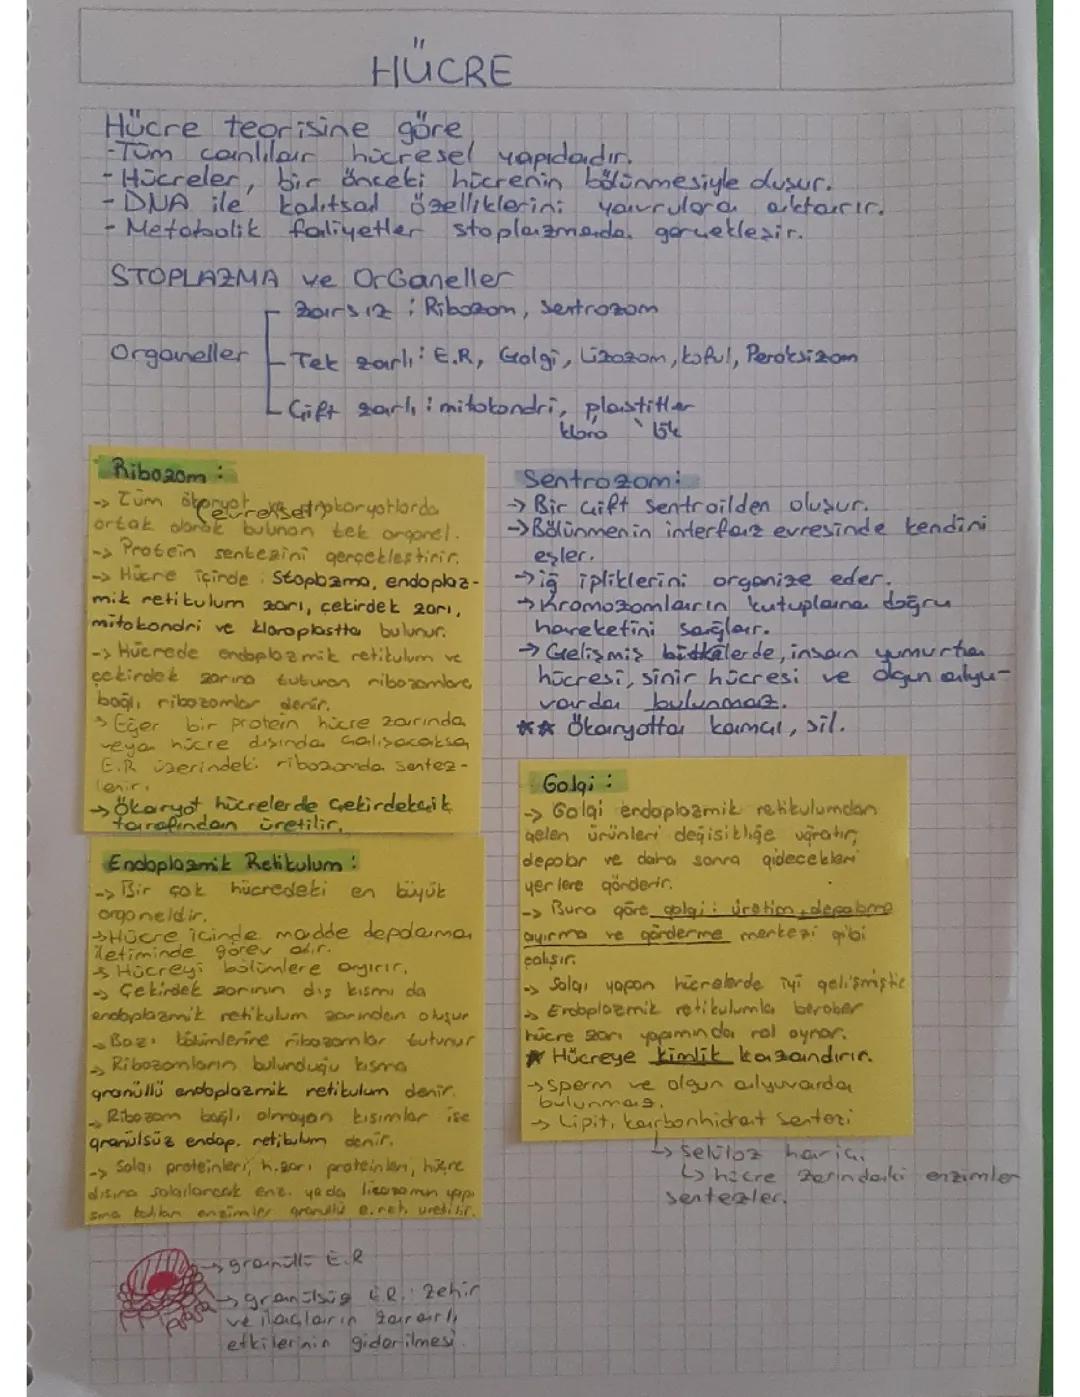 HÜCRE
Hücre teorisine göre
-Tüm canlılar hücresel yapıdadır.
- Hücreler, bir önceki hücrenin bölünmesiyle oluşur.
- DNA ile kalıtsal özelliklerini yavrulara aktarır.
- Metabolik faliyetler stoplazmada gerçekleşir.
STOPLAZMA ve OrGaneller
zarsız : Ribozom, Sentrozom
Organeller
Tek zarlı : E.R, Golgi, Lizozom, koful, Peroksizom
Çift zarlı : mitokondri, plastitler
kloro lök
Ribozom :
-> Tüm ökaryot ve prokaryotlarda
(evrensel)
ortak olarak bulunan tek organel.
-> Protein sentezini gerçekleştirir.
-> Hücre içinde : Stoplazma, endoplaz-
mik retikulum zarı, çekirdek zarı,
mitokondri ve kloroplastta bulunur.
-> Hücrede endoplazmik retikulum ve
çekirdek zarına tutunan ribozomlara
bağlı ribozomlar denir.
> Eğer bir protein hücre zarında
veya hücre dışında çalışacaksa
E.R üzerindeki ribozomda sentez-
lenir.
-> Ökaryot hücrelerde çekirdekçik
tarafından üretilir.
Sentrozom:
-> Bir çift sentroilden oluşur.
-> Bölünmenin interfaz evresinde kendini
eşler.
-> iğ ipliklerini organize eder.
-> Kromozomların kutuplara doğru
hareketini sağlar.
-> Gelişmiş bitkilerde, insan yumurta
hücresi, sinir hücresi ve olgun alyu-
varda bulunmaz.
** Ökaryotta kamçı, sil.
Golgi :
-> Golgi endoplazmik retikulumdan
gelen ürünleri değişikliğe uğratır,
depolar ve daha sonra gidecekleri
yerlere gönderir.
-> Buna göre golgi : üretim, depolama
ayırma ve gönderme merkezi gibi
çalışır.
-> Salgı yapan hücrelerde iyi gelişmiştir
-> Endoplazmik retikulumla beraber
hücre zarı yapımında rol oynar.
* Hücreye kimlik kazandırır.
-> Sperm ve olgun alyuvarda
bulunmaz.
-> Lipit, karbonhidrat sentezi
-> selüloz hariç.
-> hücre zarındaki enzimler
sentezler.
Endoplazmik Retikulum :
-> Bir çok hücredeki en büyük
organeldir.
-> Hücre içinde madde depolama,
iletiminde görev alır.
-> Hücreyi bölümlere ayırır.
-> Çekirdek zarının dış kısmı da
endoplazmik retikulum zarından oluşur
-> Bazı bölümlerine ribozomlar tutunur
-> Ribozomların bulunduğu kısma
granüllü endoplazmik retikulum denir.
-> Ribozom bağlı olmayan kısımlar ise
granülsüz endop. retikulum denir.
-> Salgı proteinleri, h.zarı proteinleri, hücre
dışına salgılanacak enz. ya da lizozomun yapı
sına katılan enzimler granüllü e.ret. üretilir.
-> granüllü E.R
-> granülsüz E.R. : zehir
ve ilaçların zararlı
etkilerinin giderilmesi.